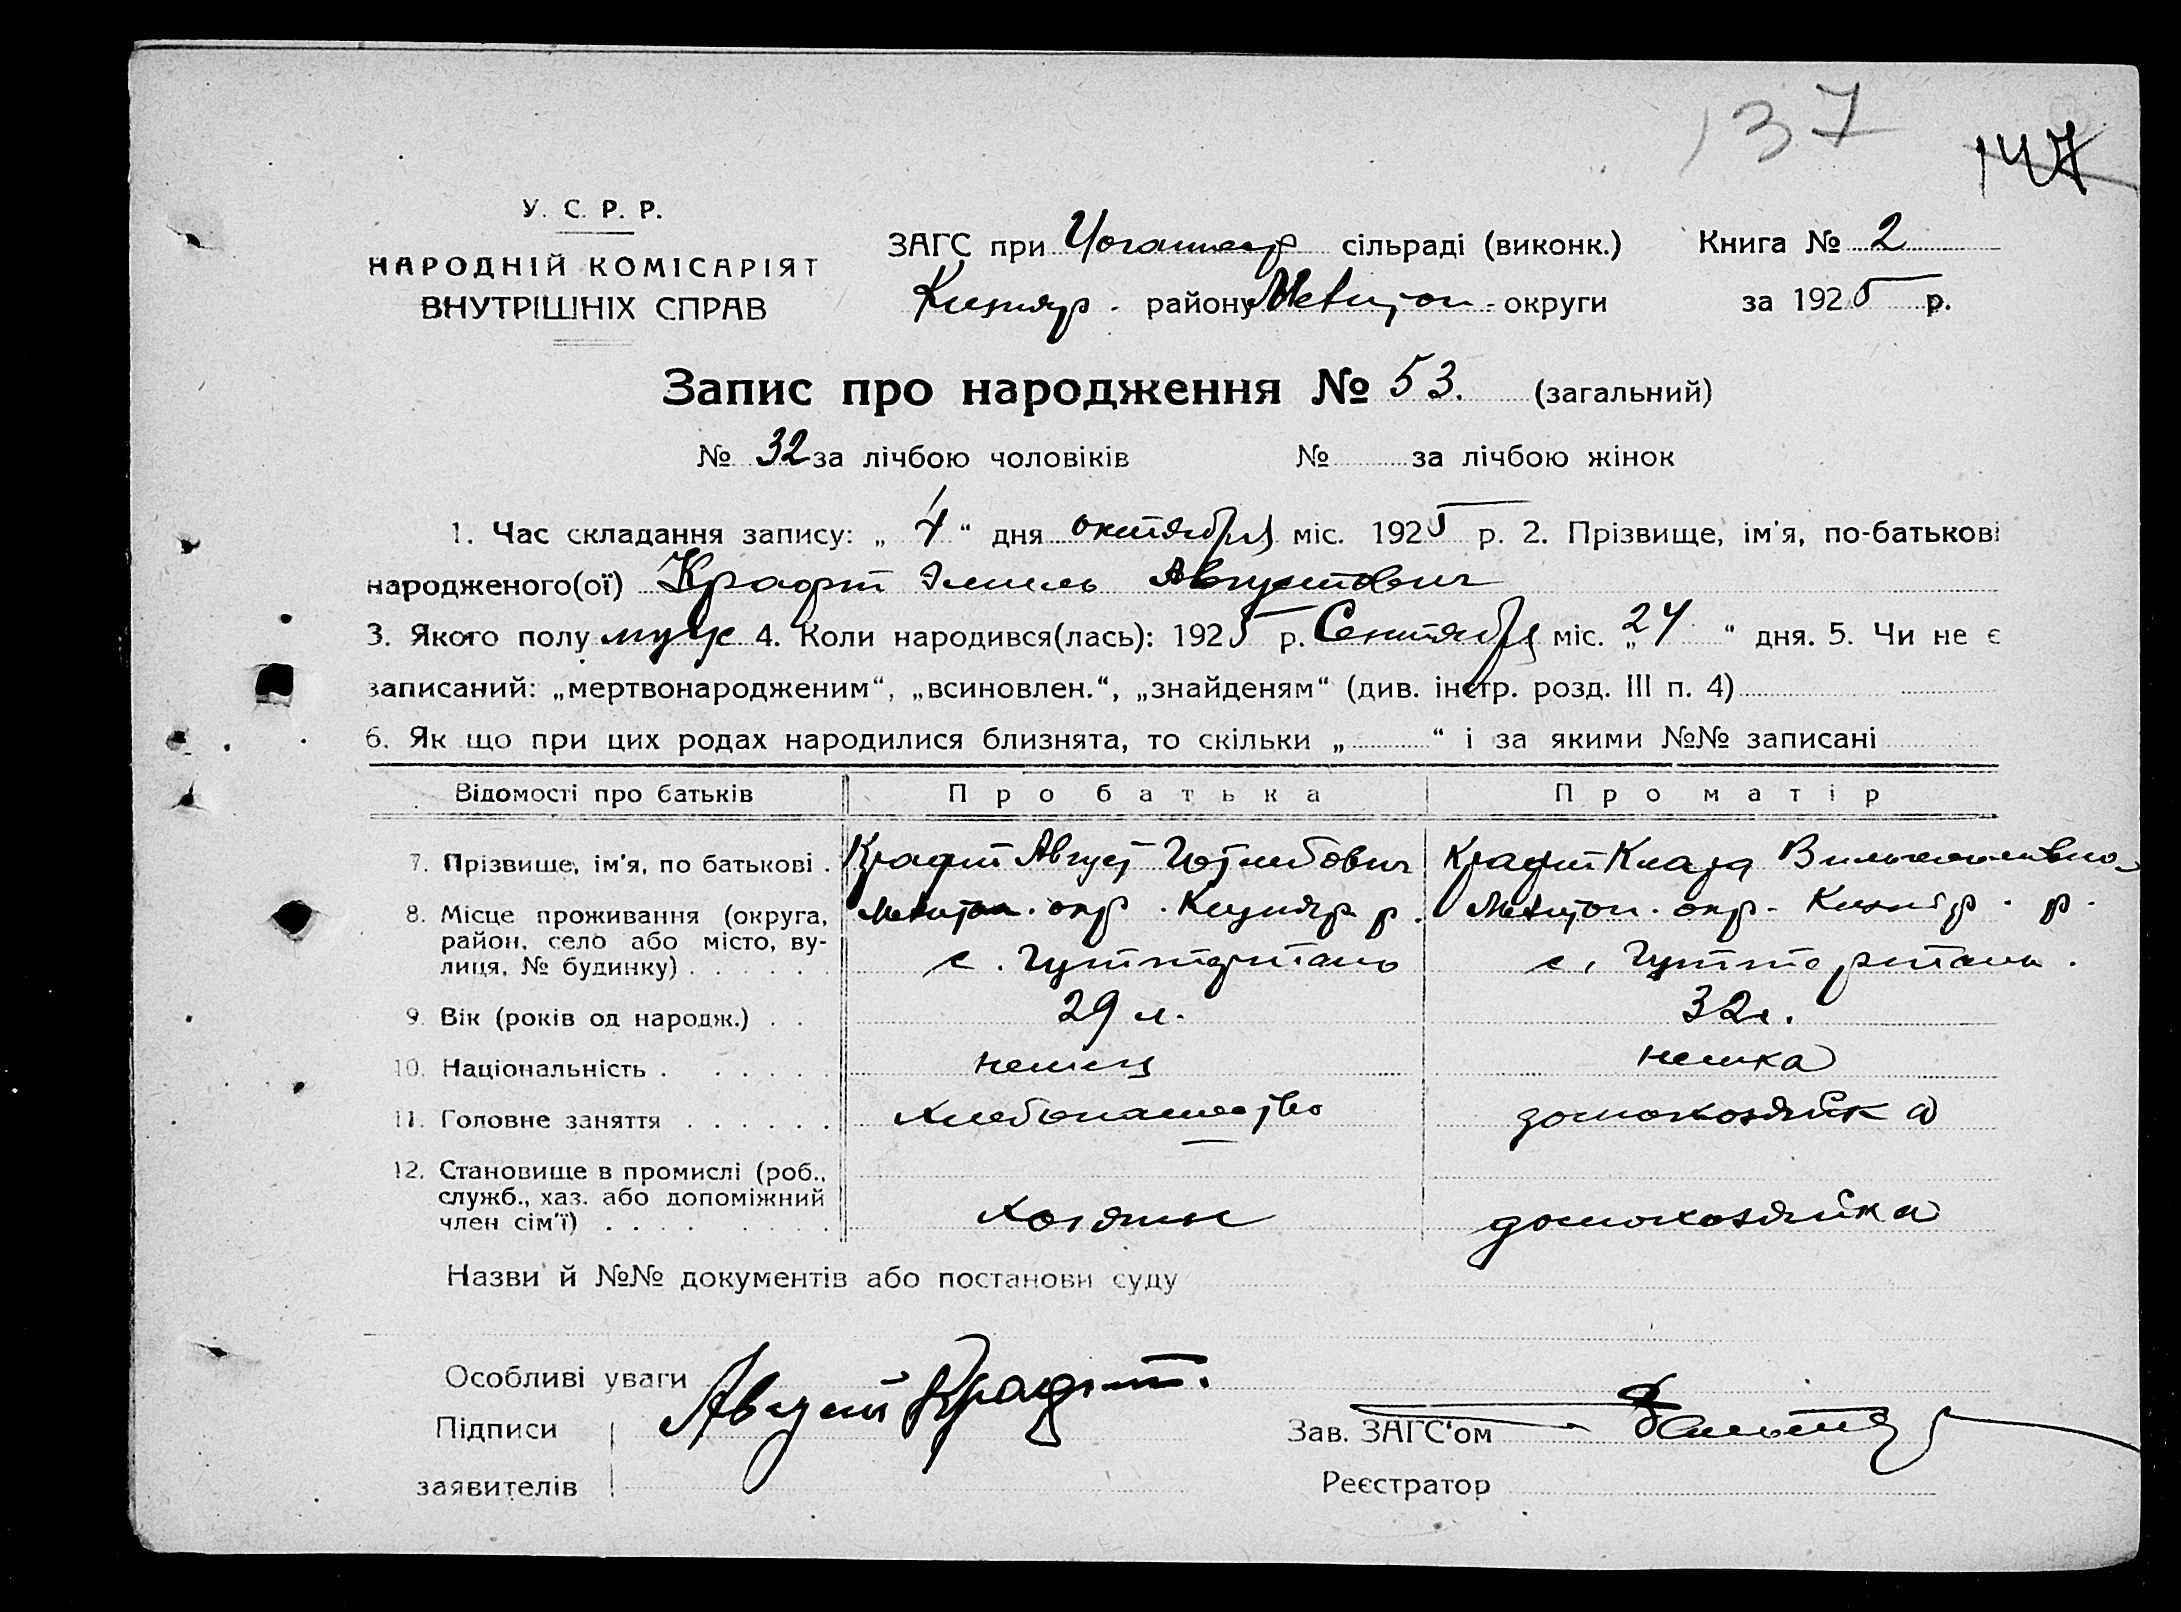 137
147
У. С. Р. Р.
НАРОДНІЙ КОМІСАРІЯТ
ВНУТРІШНІХ СПРАВ
ЗАГС при сільраді (виконк.) Книга № 2
району округи за 1925 р.
Запис про народження № 53. (загальний)
№ 32 за лічбою чоловіків № за лічбою жінок
1. Час складання запису: „ 4 “ дня октября міс. 1925 р. 2. Прізвище, ім'я, по-батькові
народженого(ої) Крафт Эмиль Августович
3. Якого полу муж 4. Коли народився(лась): 1925 р. Сентября міс. „ 24 “ дня. 5. Чи не є
записаний: „мертвонародженим“, „всиновлен.“, „знайденям“ (див. інстр. розд. III п. 4)
6. Як що при цих родах народилися близнята, то скільки „ “ і за якими №№ записані
Відомості про батьків Про батька Про матір
7. Прізвище, ім'я, по батькові . Крафт Август Готлибович Крафт Клара
8. Місце проживання (округа, окр. р. окр. р.
район, село або місто, ву-
лиця, № будинку) . . . . . . с. Гуттерталь с. Гуттерталь.
9. Вік (років од народж.) . . 29 л. 32 л.
10. Національність . . . . . . немец немка
11. Головне заняття . . . . . . хлебопашество домохозяйка
12. Становище в промислі (роб.,
служб., хаз. або допоміжний
член сім'ї) . . . . . . . хозяин домохозяйка
Назви й №№ документів або постанови суду
Особливі уваги
Август Крафт.
Підписи Зав. ЗАГС'ом
заявителів Реєстратор